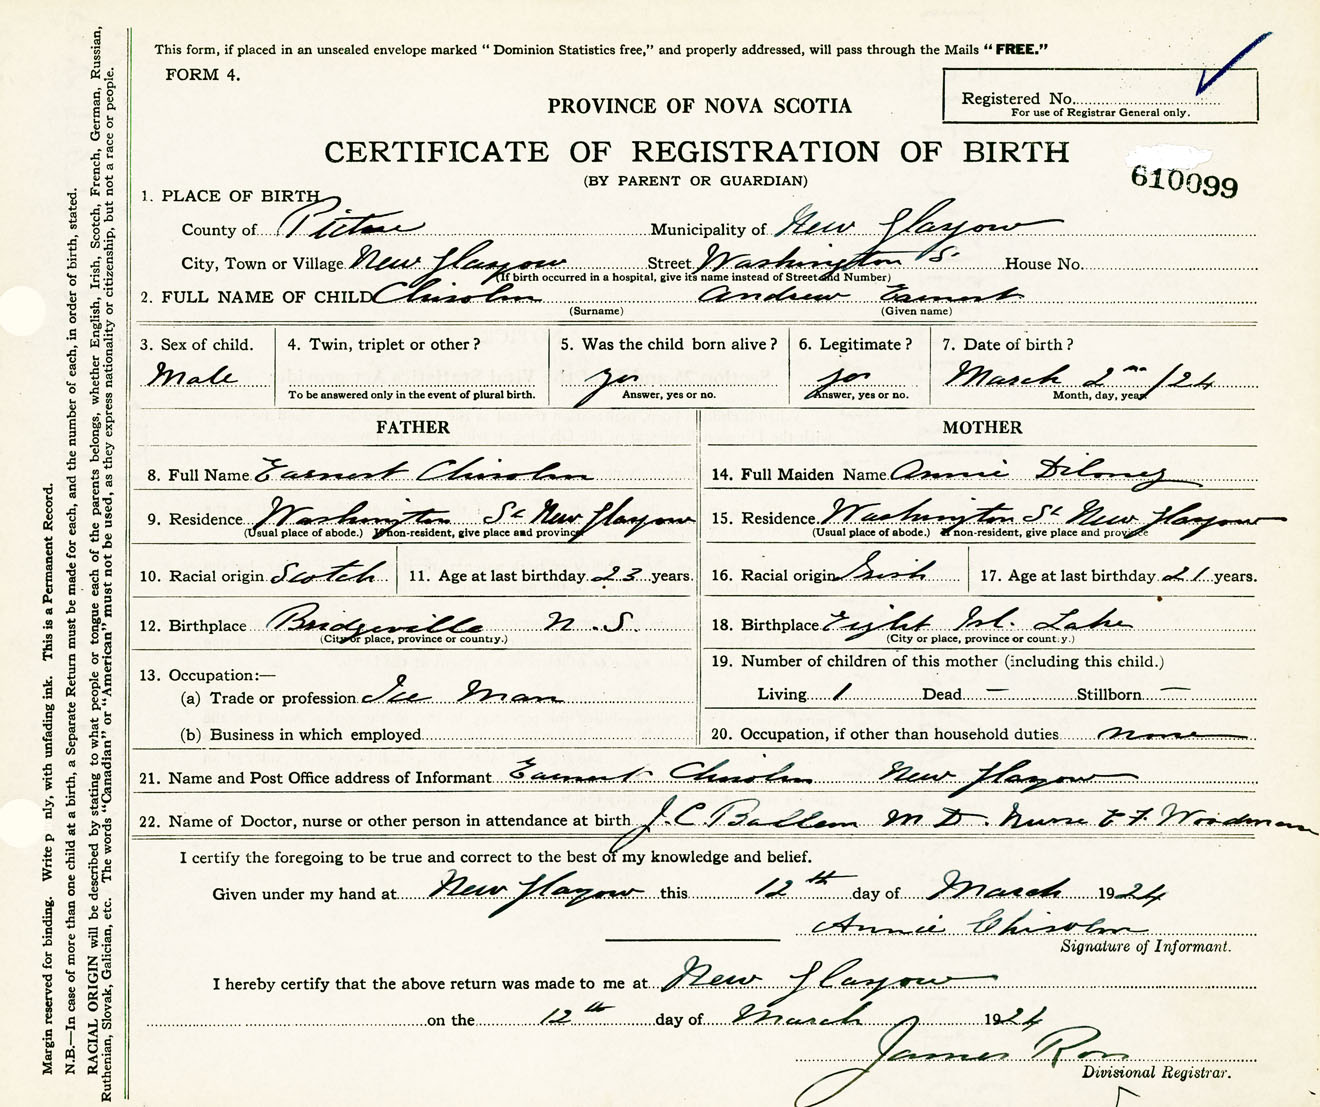 This form, if placed in an unsealed envelope marked "Dominion Statistics free," and properly addressed, will pass through the Mails "FREE."
FORM 4.
Registered No.
For use of Registrar General only.
PROVINCE OF NOVA SCOTIA
CERTIFICATE OF REGISTRATION OF BIRTH
(BY PARENT OR GUARDIAN)
610099
1. PLACE OF BIRTH
County of Pictou Municipality of New Glasgow
City, Town or Village New Glasgow Street Washington S. House No.
(If birth occurred in a hospital, give its name instead of Street and Number)
2. FULL NAME OF CHILD Chisolm Andrew Earnest
(Surname) (Given name)
3. Sex of child. 4. Twin, triplet or other? 5. Was the child born alive? 6. Legitimate? 7. Date of birth?
Male yes yes March 2nd /24
To be answered only in the event of plural birth. Answer, yes or no. Answer, yes or no. Month, day, year
FATHER MOTHER
8. Full Name Earnest Chisolm 14. Full Maiden Name Annie Diloney
9. Residence Washington St New Glasgow 15. Residence Washington St New Glasgow
(Usual place of abode.) If non-resident, give place and province (Usual place of abode.) If non-resident, give place and province
10. Racial origin Scotch 11. Age at last birthday 23 years. 16. Racial origin Irish 17. Age at last birthday 21 years.
12. Birthplace Bridgeville N.S. 18. Birthplace Eight Isl. Lake
(City or place, province or country.) (City or place, province or country.)
13. Occupation:— 19. Number of children of this mother (including this child.)
(a) Trade or profession Ice Man Living 1 Dead — Stillborn —
(b) Business in which employed 20. Occupation, if other than household duties none
21. Name and Post Office address of Informant Earnest Chisolm New Glasgow
22. Name of Doctor, nurse or other person in attendance at birth J.C. Ballem M D. Nurse E F. Woodman
I certify the foregoing to be true and correct to the best of my knowledge and belief.
Given under my hand at New Glasgow this 12th day of March 1924
Annie Chisolm
Signature of Informant.
I hereby certify that the above return was made to me at New Glasgow
on the 12th day of March 1924
James Ross
Divisional Registrar.
Margin reserved for binding. Write p nly, with unfading ink. This is a Permanent Record.
N.B.—In case of more than one child at a birth, a Separate Return must be made for each, and the number of each, in order of birth, stated.
RACIAL ORIGIN will be described by stating to what people or tongue each of the parents belongs, whether English, Irish, Scotch, French, German, Russian,
Ruthenian, Slovak, Galician, etc. The words "Canadian" or "American" must not be used, as they express nationality or citizenship, but not a race or people.